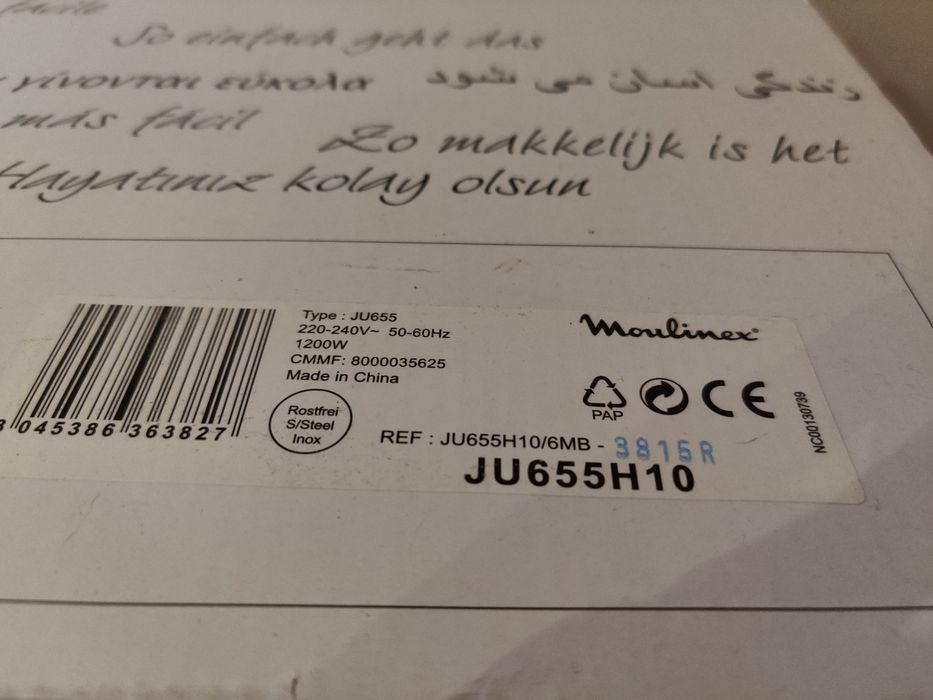 facile
So einfach geht das
γίνονται εύκολα زندگی آسان می شود
más fácil Zo makkelijk is het
Hayatınız kolay olsun
Type : JU655
220-240V~ 50-60Hz
1200W
CMMF: 8000035625
Made in China
Moulinex
3 045386 363827
Rostfrei
S/Steel
Inox
PAP
CE
NC00130739
REF : JU655H10/6MB - 3815R
JU655H10